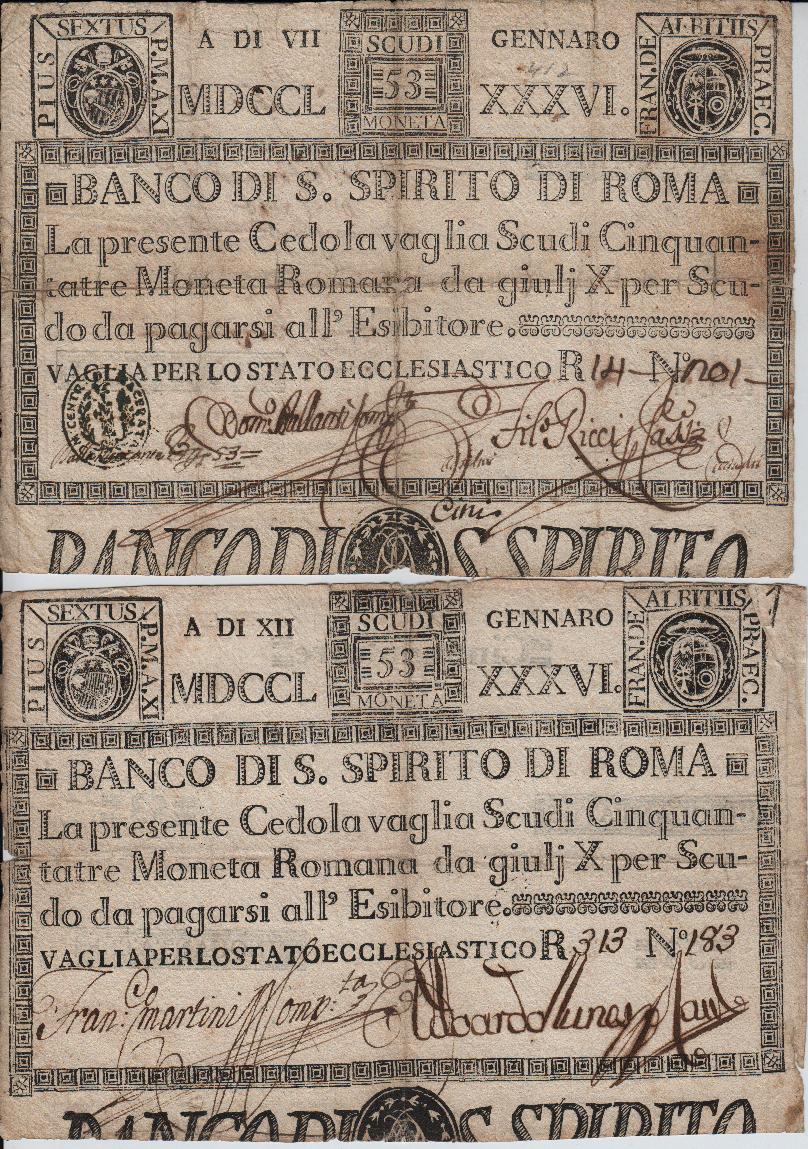 PIUS SEXTUS P.M.A.XI
A DI VII
MDCCL
SCUDI
53
MONETA
GENNARO
XXXVI.
FRAN.DE ALBITIIS PRAEC.
BANCO DI S. SPIRITO DI ROMA
La presente Cedola vaglia Scudi Cinquan-
tatre Moneta Romana da giulj X per Scu-
do da pagarsi all' Esibitore.
VAGLIA PER LO STATO ECCLESIASTICO R 14 - No 1201 -
Ricci
BANCO DI S. SPIRITO
PIUS SEXTUS P.M.A.XI
A DI XII
MDCCL
SCUDI
53
MONETA
GENNARO
XXXVI.
FRAN.DE ALBITIIS PRAEC.
1
BANCO DI S. SPIRITO DI ROMA
La presente Cedola vaglia Scudi Cinquan-
tatre Moneta Romana da giulj X per Scu-
do da pagarsi all' Esibitore.
VAGLIA PER LO STATO ECCLESIASTICO R 313 No 183
Fran.co martini Comp.ta
BANCO DI S. SPIRITO